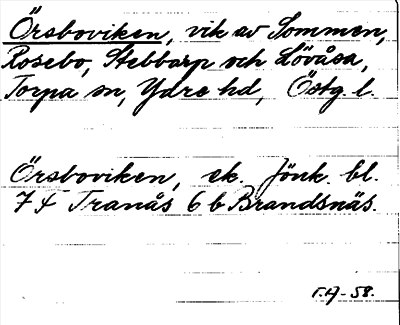 Örsboviken, vik av Sommen,
Rosebo, Stebbarp och Lövåsa,
Torpa sn, Ydre hd, Östg. l.
Örsboviken, ek. Jönk. bl.
7 F Tranås 6 b Brandsnäs.
T.H - 58.